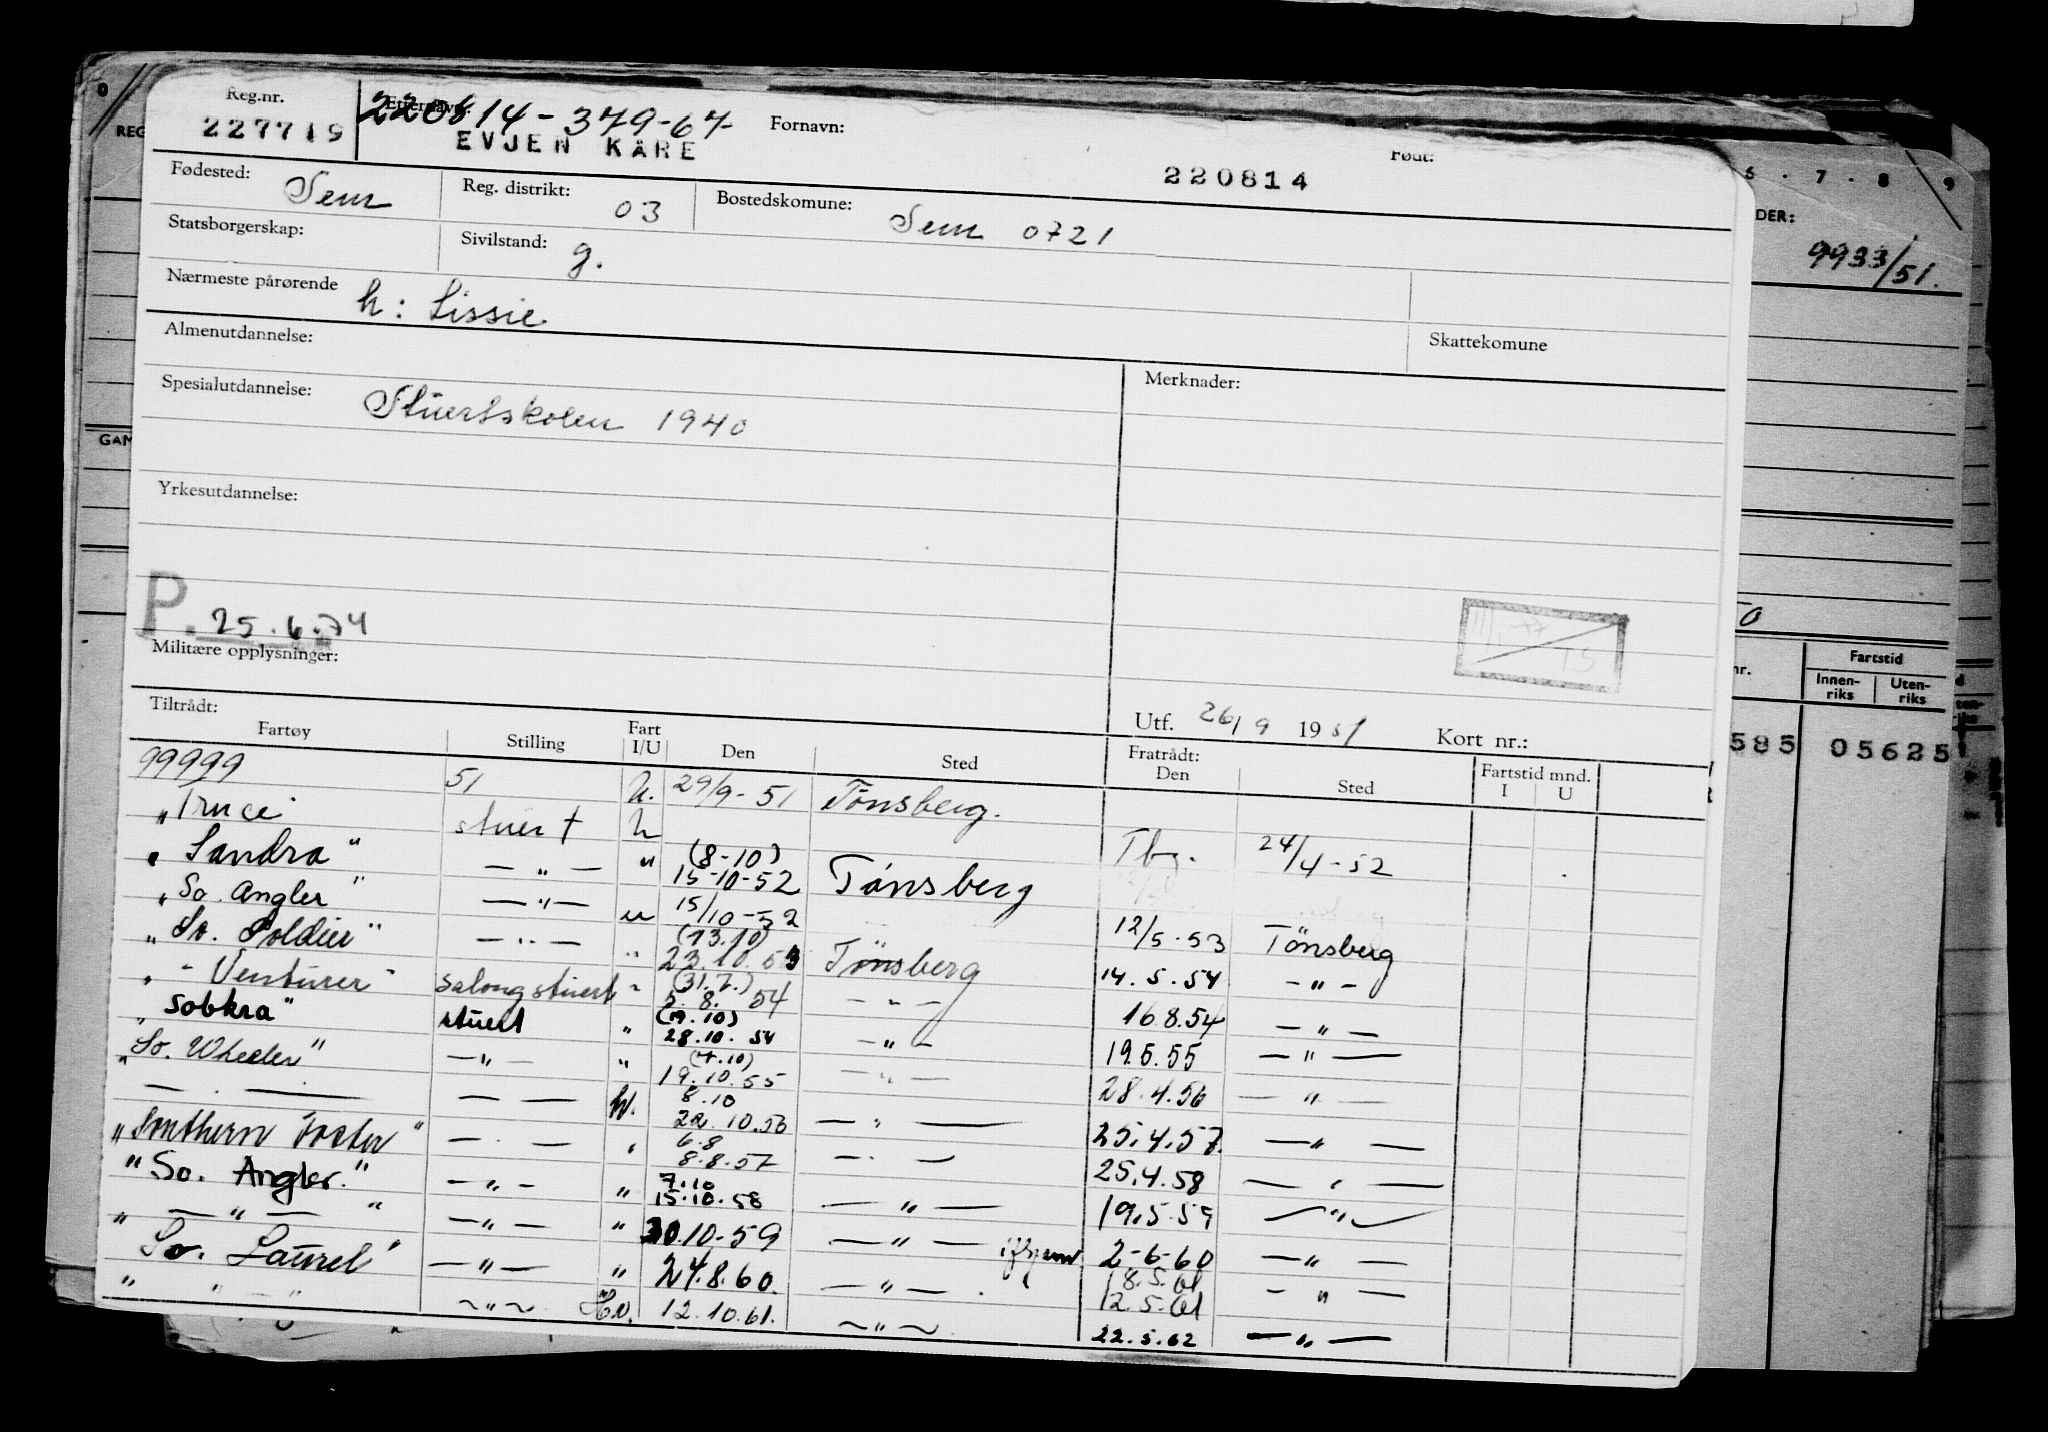 Reg.nr. Etternavn: Fornavn: Født:
227719 220814-379-67 EVJEN KÅRE 220814
Fødested: Sem Reg. distrikt: 03 Bostedskomune: Sem 0721
Statsborgerskap: Sivilstand: g.
Nærmeste pårørende h: Lissie
Almenutdannelse: Skattekomune
Spesialutdannelse: Stuertskolen 1940 Merknader:
Yrkesutdannelse:
P. 25.6.74
Militære opplysninger:
Utf. 26/9 1951 Kort nr.:
Tiltrådt: Fratrådt:
Fartøy Stilling Fart I/U Den Sted Den Sted Fartstid mnd. I U
99999 51 U. 29/9-51 Tönsberg.
"Truce" stuert U Tbg. 24/4-52
"Sandra" — " — " (8-10) 15-10-52 Tönsberg
"So. Angler" — " — u 15/10-52 12/5-53 Tönsberg
"So. Soldier" — " — " (13.10) 23.10.53 Tönsberg 14.5.54 — " —
" - Venturer" salongstuert " (31.7.) 5.8.54 — " — 16.8.54 — " —
"Sobkra" stuert " (19.10) 28.10.54 — " — 19.5.55 — " —
"So. Wheeler" — " — " (7.10) 19.10.55 — " — 28.4.56 — " —
— . — — — Hv. 8.10 22.10.53 — " — 25.4.57. — " —
"Southern Foster" — . — " 6.8 8.8.57 — . — 25.4.58 — " —
"So. Angler." — " — " 7.10 15.10.58 — " — 19.5.59 — " —
" — " — " — " — " 30.10-59 — " — 2-6-60 — " —
"So. Laurel" — " — " 24.8.60. — " — . 18.5.61 12.5.61 — " —
" " — " — — " — Hv. 12.10.61. — " — 22.5.62 — " —
0
REG
GAM
6 . 7 . 8 . 9
DER:
9933/51.
0
nr. Fartstid
Innen-riks Uten-riks
585 05625